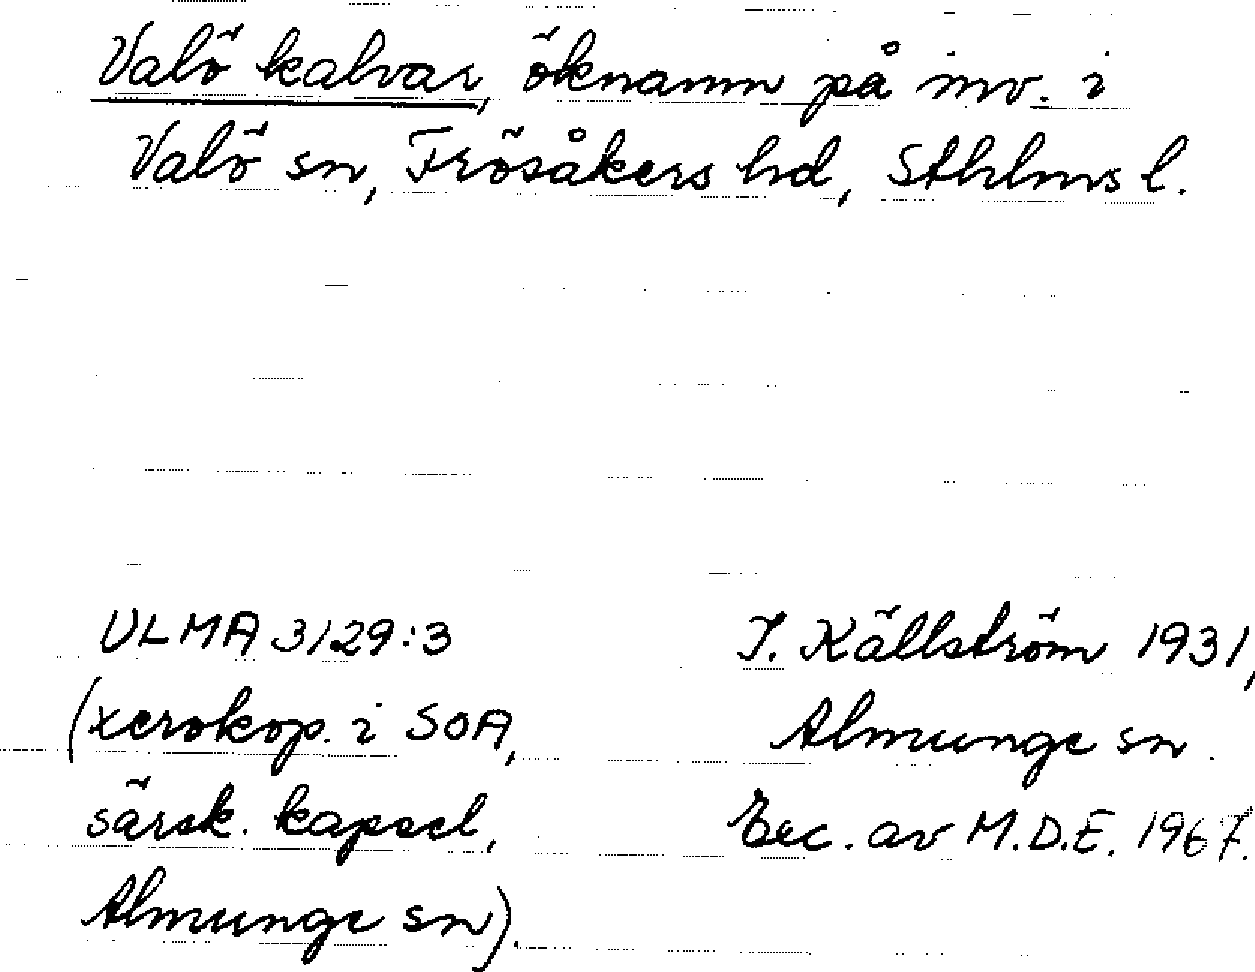 Valö kalvar, öknamn på inv. i
Valö sn, Frösåkers hd, Sthlms l.
ULMA 3129:3
(xerokop. i SOA,
särsk. kapsel,
Almunge sn).
T. Källström 1931,
Almunge sn.
Exc. av M.D.E. 1967.